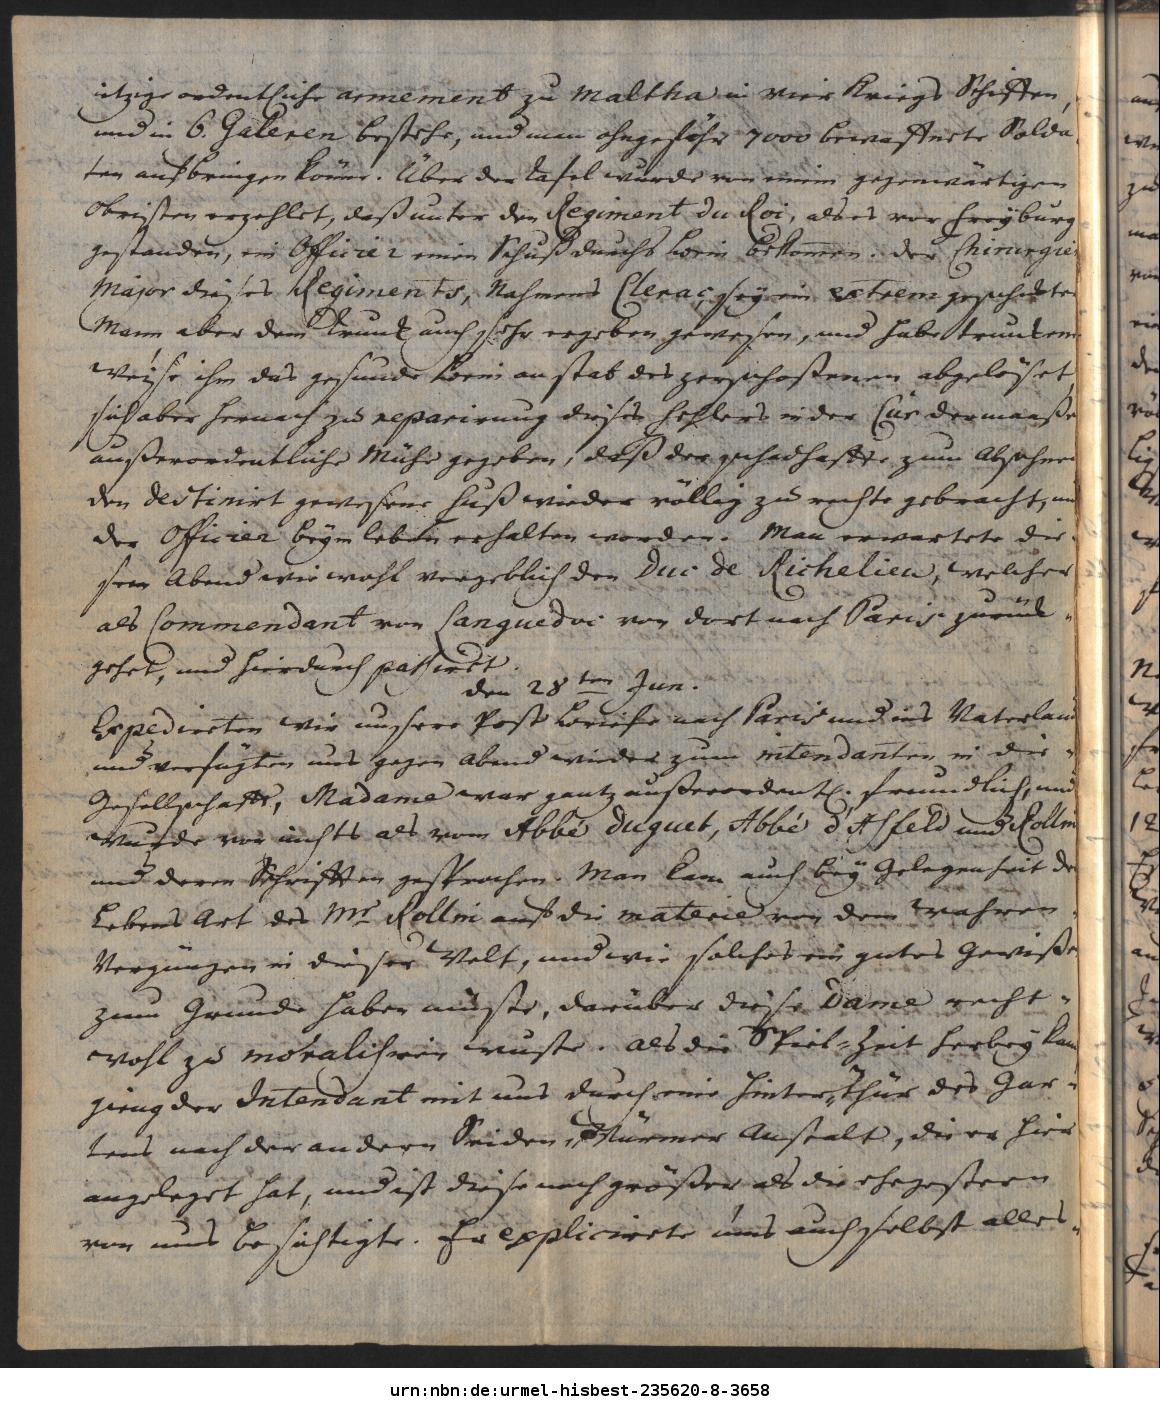 itzige ordentliche armement zu Maltha in vier Kriegs Schiffen,
und in 6. Galeren bestehe, und man ohngefähr 7000 bewaffnete Solda
ten aufbringen könne. Über der Tafel wurde von einem gegenwärtigen
Obristen erzehlet, daß unter den Regiment du Roi, als es vor Freyburg
gestanden, ein Officier einen Schuß durchs Bein bekommen. der Chirurgie
Major dieses Regiments, Nahmens Clerac, sey ein extrem geschickter
Mann aber dem Trunck auch sehr ergeben gewesen, und habe trunckene
weise ihm das gesunde Bein an statt des zerschoßenen abgelöset,
sich aber hernach zu reparirung dieses Fehlers in der Cur dermaaße
außerordentliche Mühe gegeben, daß der schadhaffte zum Abschnei
den destinirt gewesene Fuß wieder völlig zu rechte gebracht, und
der Officier beym leben erhalten worden. Man erwartete die-
sen Abend wiewohl vergeblich den Duc de Richelieu, welcher
als Commendant von Languedoc von dort nach Paris zurück-
gehet, und hierdurch passirt.
den 28ten Jun.
Expedirten wir unsere Post Briefe nach Paris und ins Vaterland
und verfügten uns gegen Abend wieder zum intendanten in die-
Gesellschafft, Madame war gantz außerordentl. freundlich, und
wurde von nichts als vom Abbé Duguet, Abbé d'Asfeld und Rollin
und deren Schrifften gesprochen. Man kam auch bey Gelegenheit der
Lebens Art des Mr Rollin auf die materie von dem wahren
Vergnügen in dieser Welt, und wie solches ein gutes Gewißen
zum Grunde haben müsste, darüber diese Dame recht-
wohl zu moralisiren wuste. Als die Spiel-Zeit herbey kam
gieng der Intendant mit uns durch eine Hinter-Thür des Gar-
tens nach der andern Seiden-Würmer Anstalt, die er hier
angeleget hat, und ist diese noch größer als die ehegestern
von uns besichtigte. Er explicirte uns auch selbst alles-
urn:nbn:de:urmel-hisbest-235620-8-3658